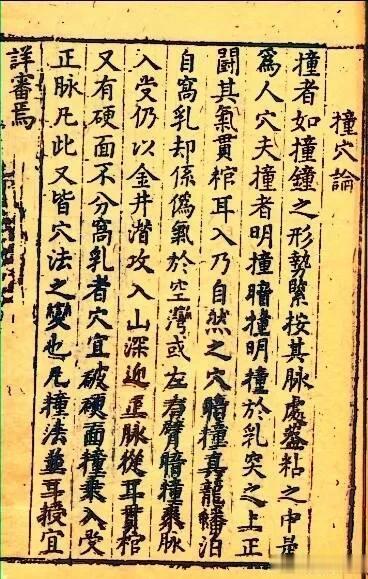 撞穴論
撞者如撞鐘之形勢緊按其脉處粘之中是
為人穴夫撞者明撞暗撞明撞於乳突之上正
鬪其氣貫棺耳入乃自然之穴暗撞真龍蟠泊
自窩乳却係偽氣於空灣或左右臂暗撞乘脉
入受仍以金井潜攻入山深迎正脉從耳貫棺
又有硬面不分窩乳者穴宜破硬面撞乘入受
正脉凡此又皆穴法之變也凡撞法並耳授宜
詳審焉